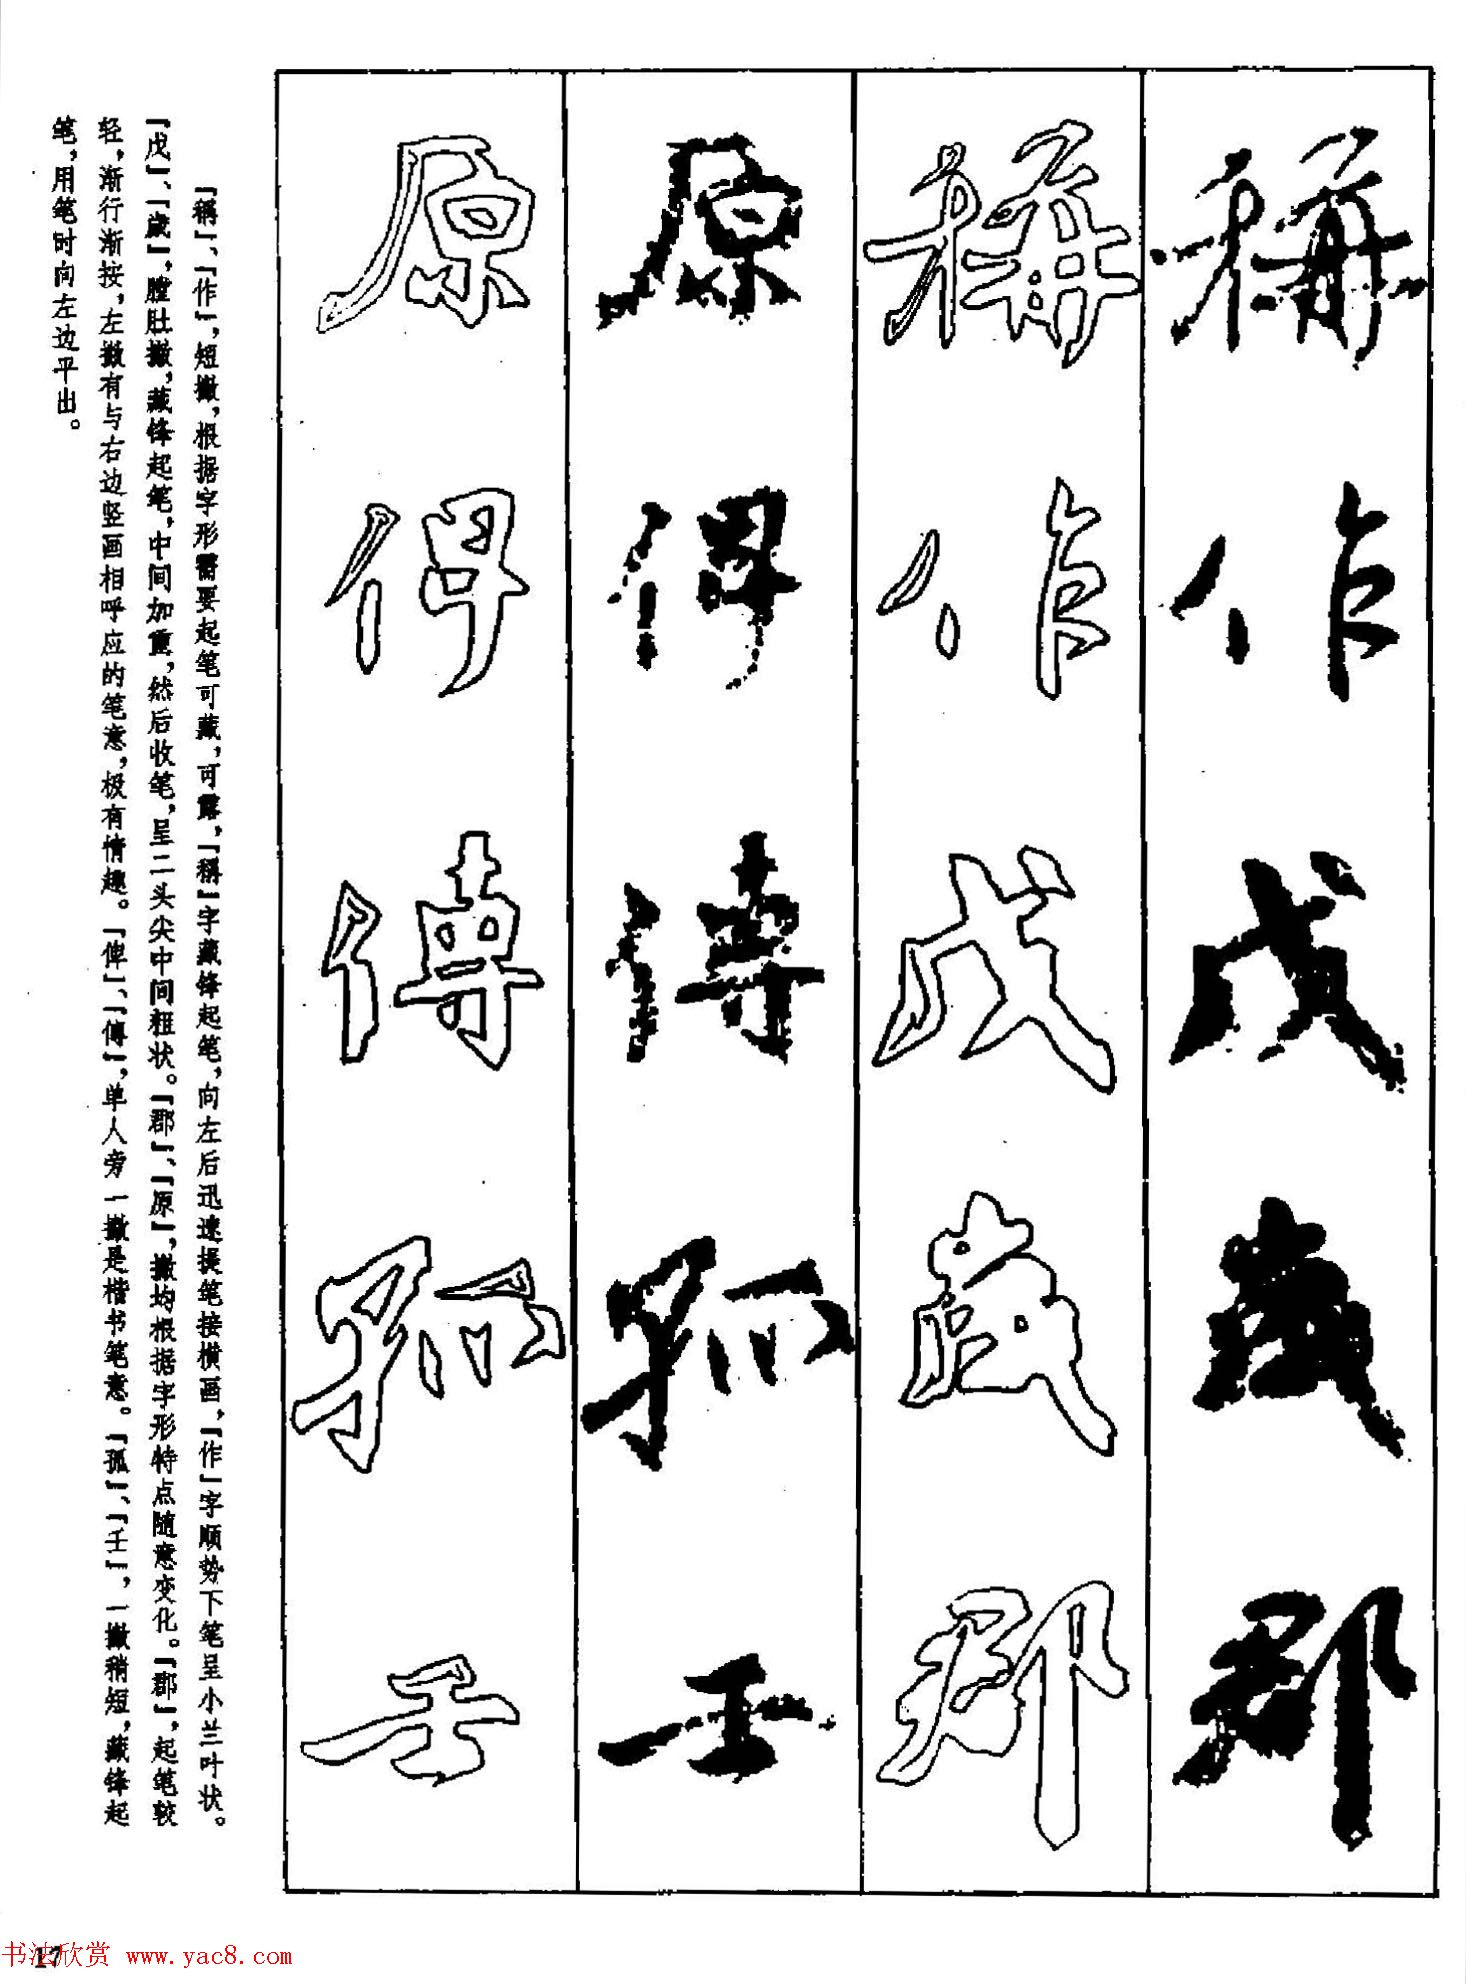 稱
作
戊
歲
郡
稱
作
戊
歲
郡
原
俾
傅
孤
壬
原
俾
傅
孤
壬
「稱」、「作」，短撇，根据字形需要起笔可藏，可露，「稱」字藏锋起笔，向左后迅速提笔接横画，「作」字顺势下笔呈小兰叶状。
「戊」、「歲」，膛肚撇，藏锋起笔，中间加重，然后收笔，呈二头尖中间粗状。「郡」、「原」，撇均根据字形特点随意变化。「郡」，起笔较
轻，渐行渐按，左撇有与右边竖画相呼应的笔意，极有情趣。「俾」、「傅」，单人旁一撇是楷书笔意。「孤」、「壬」，一撇稍短，藏锋起
笔，用笔时向左边平出。
17
书法欣赏 www.yac8.com